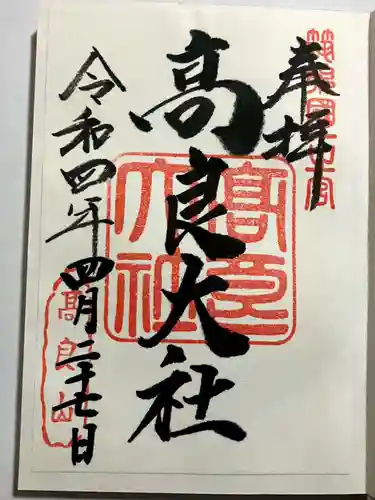 奉拝
筑後國一宮
高良大社
高良大社
令和四年四月二十七日
高良山